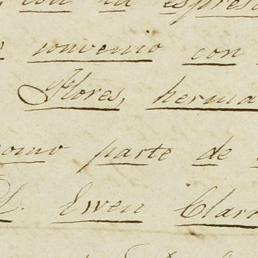 con un espres
convenio con
Flores, herma
como parte de
D. Ewen Clar